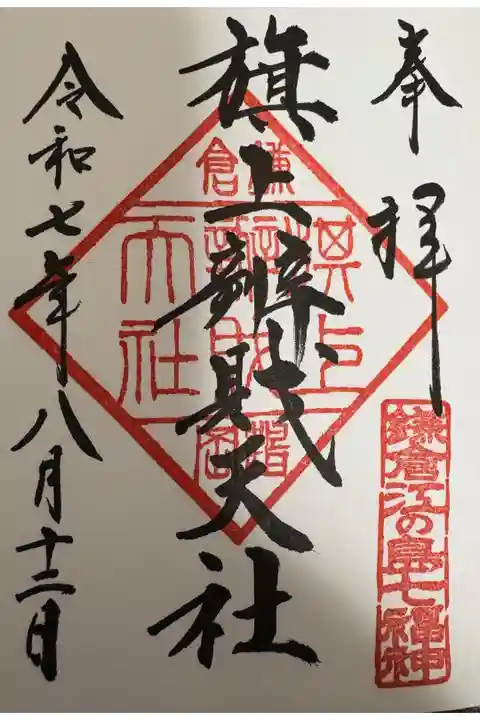 奉拝
鎌倉江の島七福神
旗上辨財天社
鎌倉
旗上
辨財
天社
令和七年八月十二日